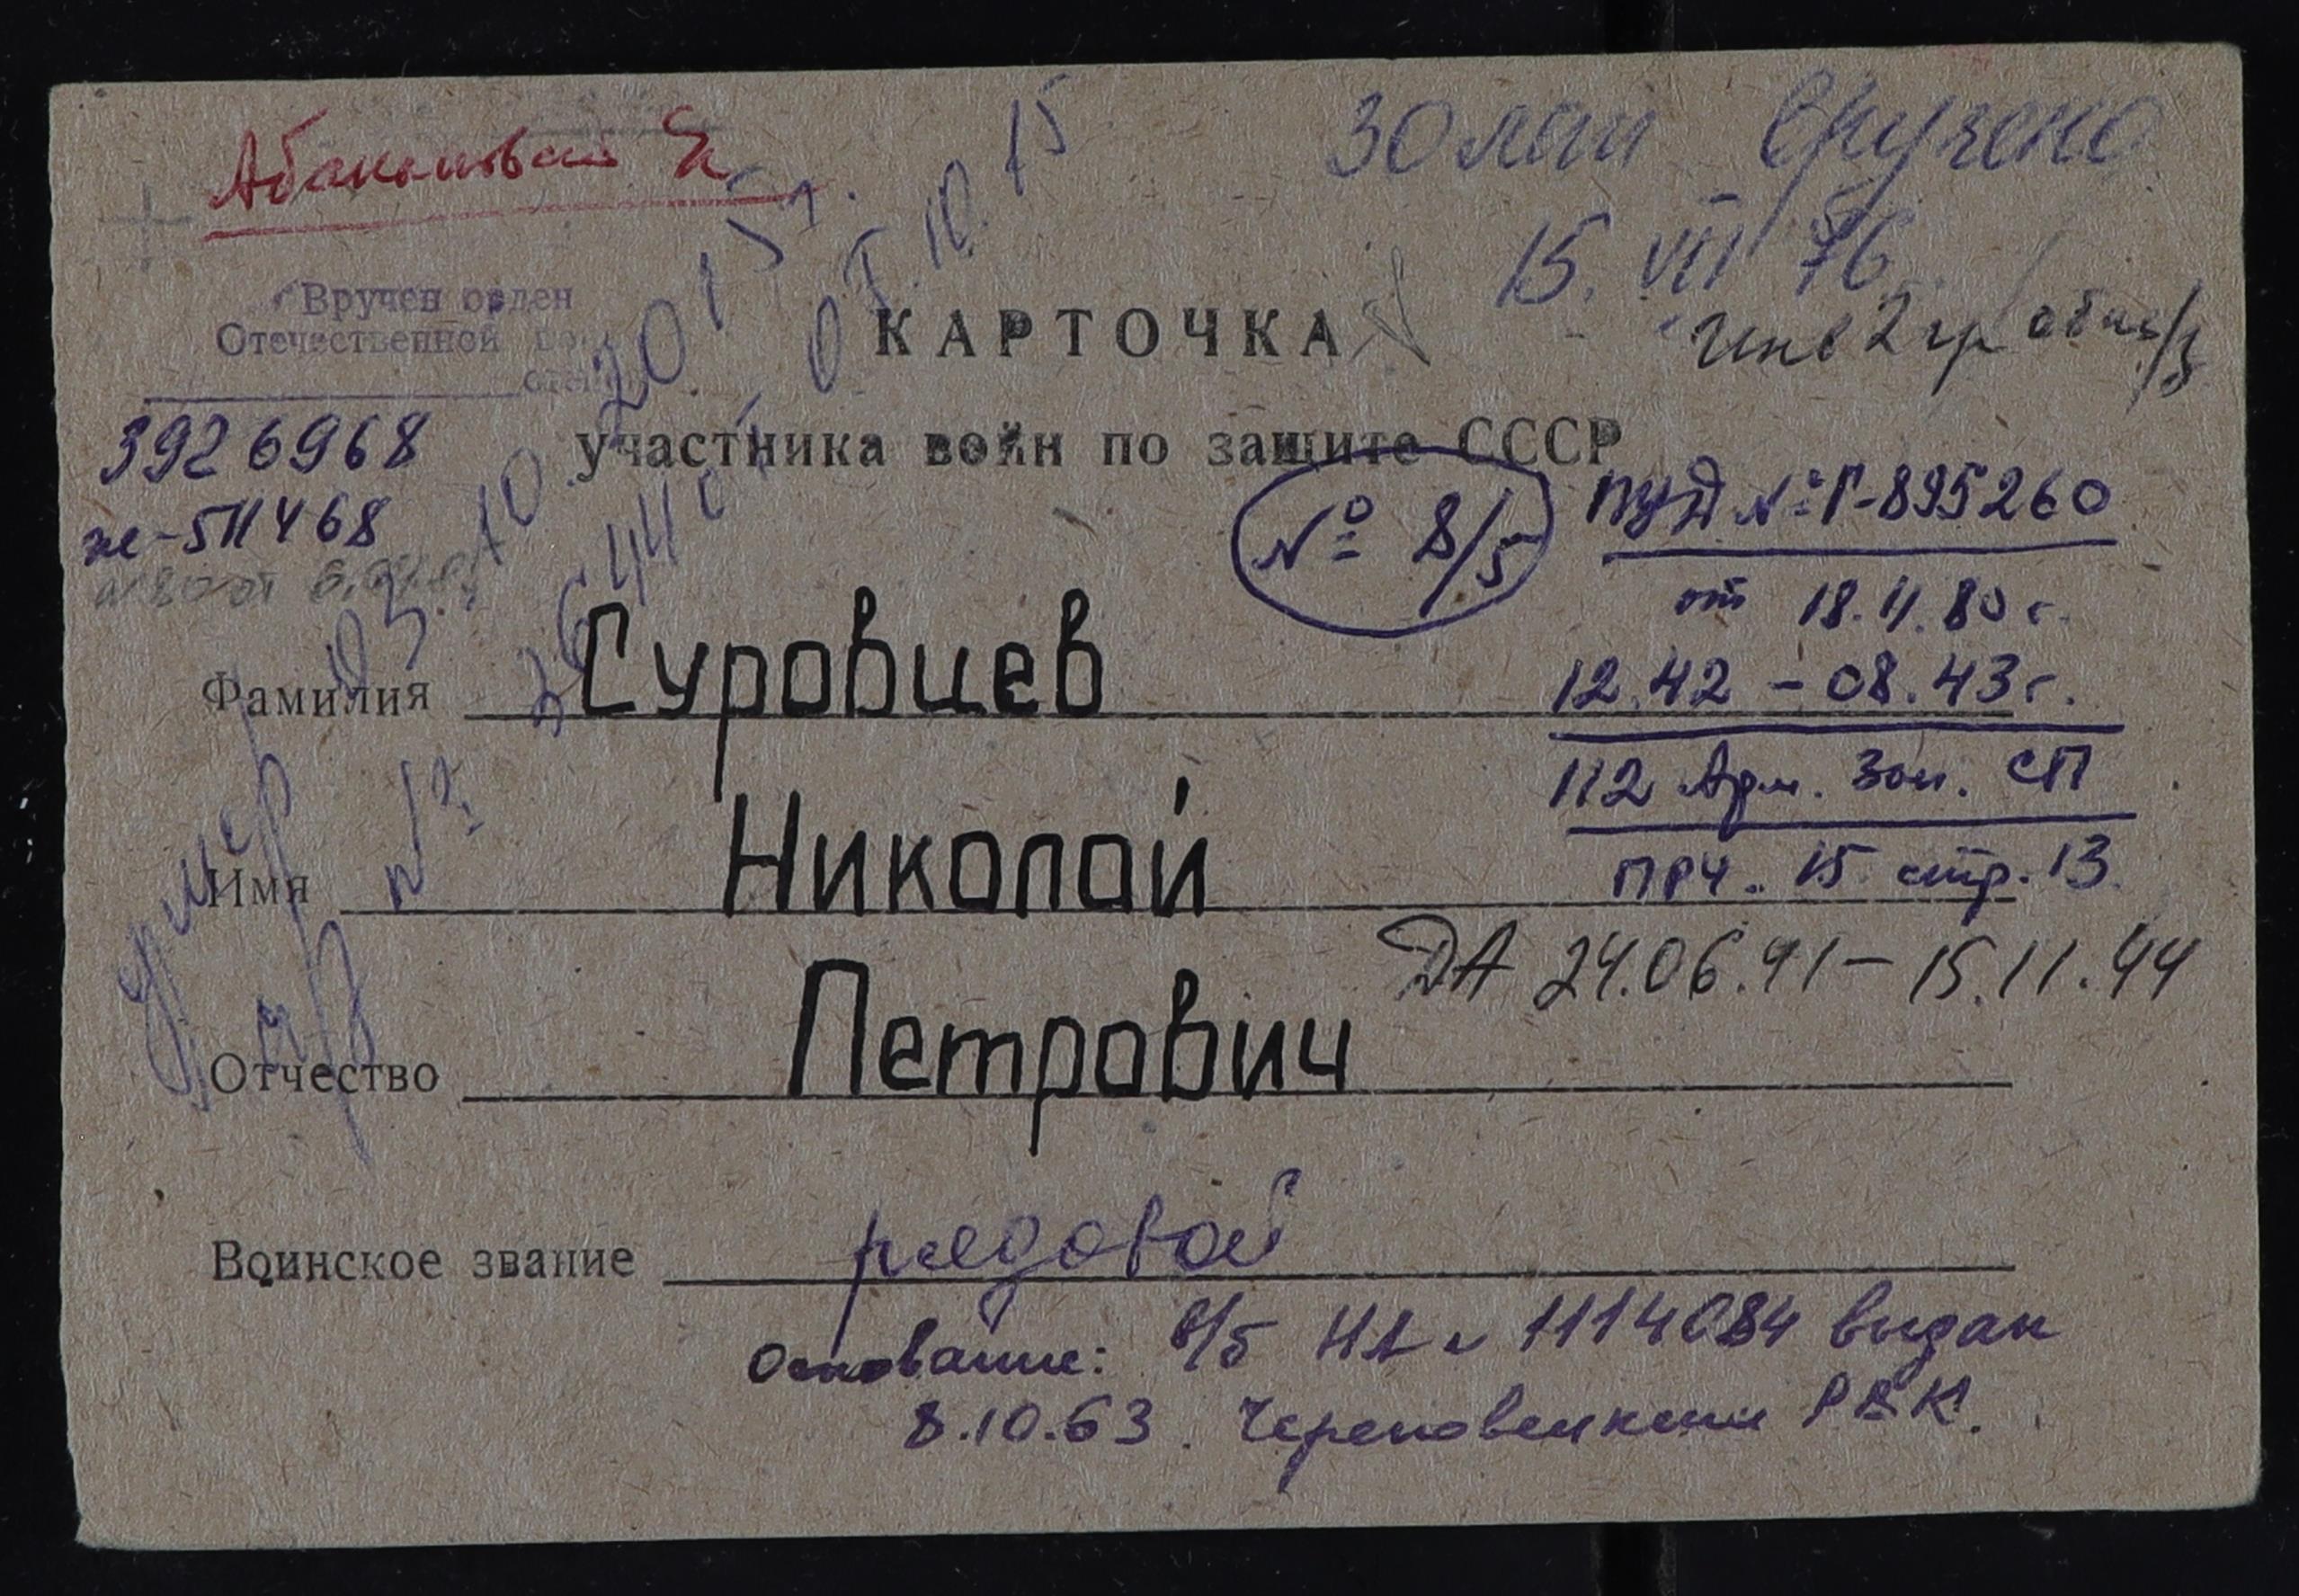 30 лет вручено
15. VII 76
Вручен орден
Отечественной
КАРТОЧКА
Инв 2 гр общ/з
3926968
участника войн по защите СССР
№ 8/5
ПУД № Г-895260
от 18.11.80 г.
Фамилия Суровцев
12.42 - 08.43 г.
112 Арм. Зап. СП
Имя Николай
ПРЧ. 15 стр. 13
ДА 24.06.41 - 15.11.44
Отчество Петрович
Воинское звание рядовой
Основание: в/б НД № 1114084 выдан
8.10.63. Череповецким РВК.
умер 03.10.2015 г.
№ 26440 от 10.15